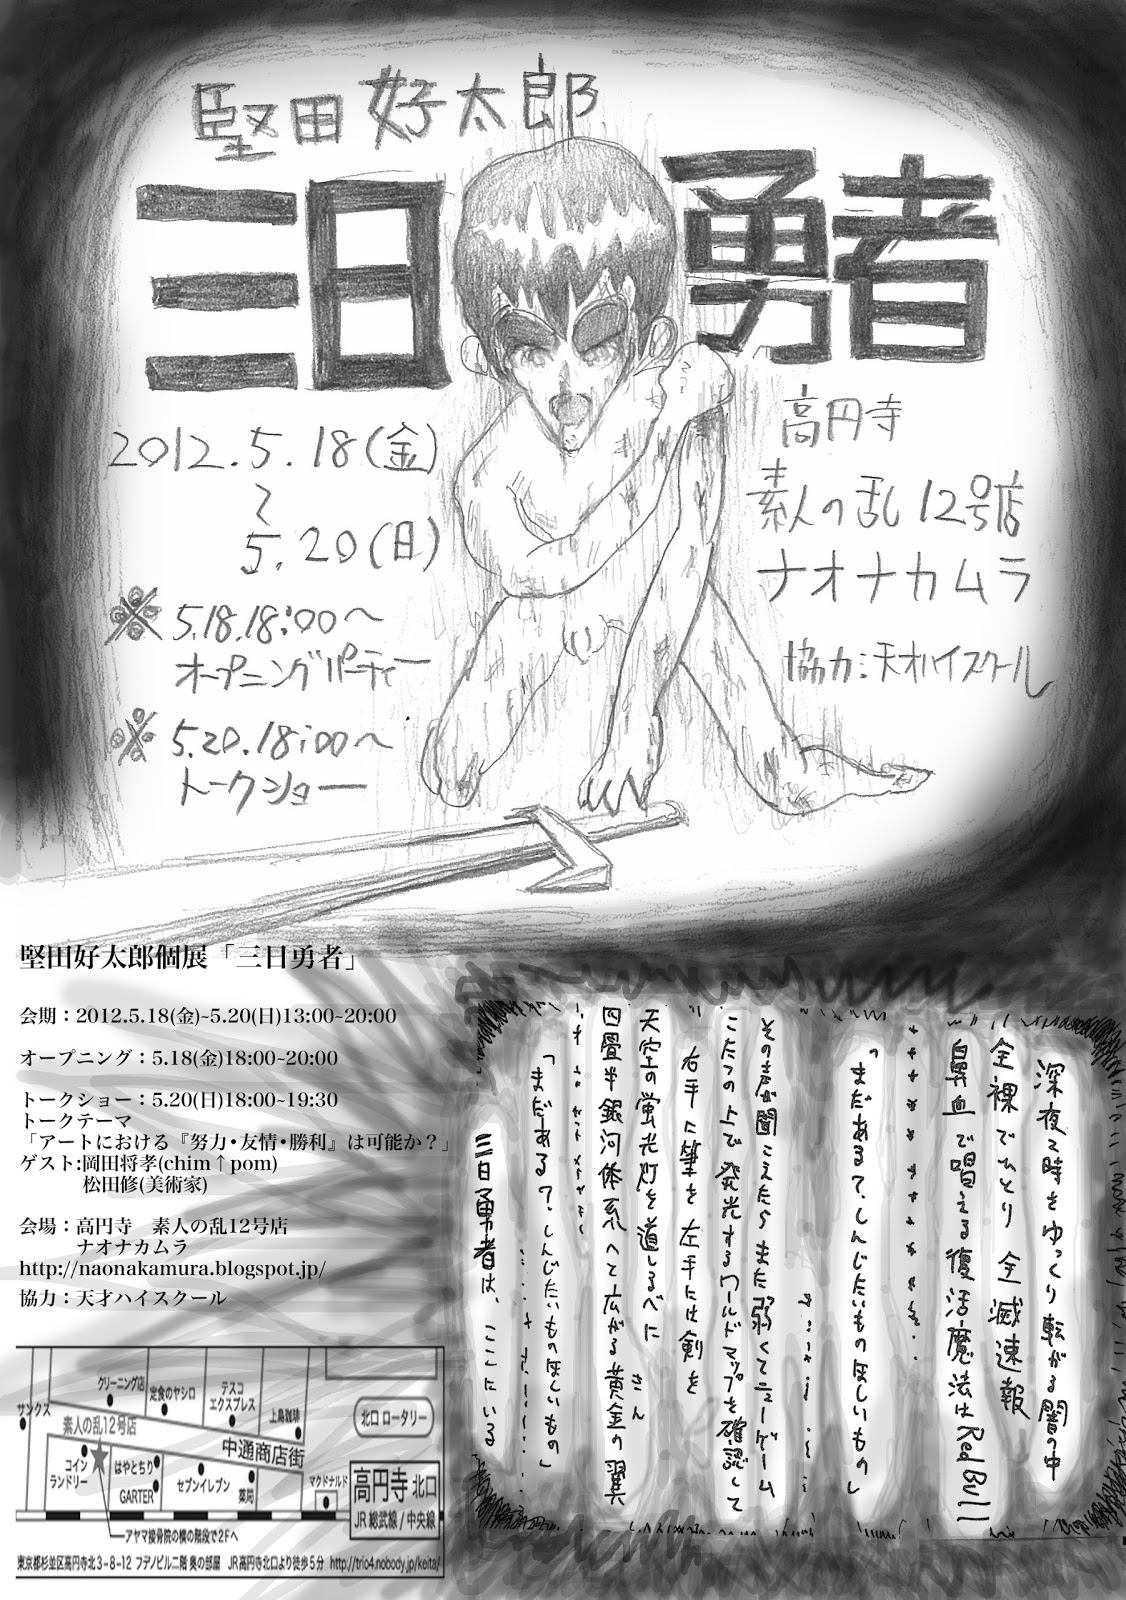 堅田好太郎
三日勇者
2012.5.18(金)
〜
5.20(日)
※5.18.18:00〜
オープニングパーティー
※5.20.18:00〜
トークショー
高円寺
素人の乱12号店
ナオナカムラ
協力:天才ハイスクール
堅田好太郎個展「三日勇者」
会期：2012.5.18(金)~5.20(日)13:00~20:00
オープニング：5.18(金)18:00~20:00
トークショー：5.20(日)18:00~19:30
トークテーマ
「アートにおける『努力・友情・勝利』は可能か？」
ゲスト:岡田将孝(chim↑pom)
松田修(美術家)
会場：高円寺　素人の乱12号店
ナオナカムラ
http://naonakamura.blogspot.jp/
協力：天才ハイスクール
深夜2時をゆっくり転がる闇の中
全裸でひとり 全滅速報
鼻血で唱える復活魔法はRed Bull
「まだある？、しんじたいものほしいもの」
その声が聞こえたら また弱くてニューゲーム
こたつの上で発光するワールドマップを確認して
右手に筆を 左手には剣を
天空の蛍光灯を道しるべに
四畳半銀河体系へて広がる黄金の翼
「まだある？、しんじたいものほしいもの」
三日勇者は、ここにいる
サンクス
クリーニング店
定食のヤシロ
テスコ
エクスプレス
上島珈琲
北口 ロータリー
素人の乱12号店
中通商店街
コイン
ランドリー
はやとちり
GARTER
セブンイレブン
薬局
マクドナルド
高円寺 北口
JR 総武線 / 中央線
アヤマ接骨院の横の階段で2Fへ
東京都杉並区高円寺北3-8-12 フデノビル二階 奥の部屋 JR高円寺北口より徒歩5分 http://trio4.nobody.jp/keita/